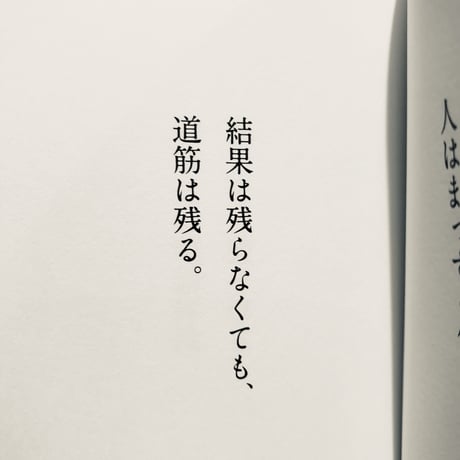 人はま
結果は残らなくても、
道筋は残る。